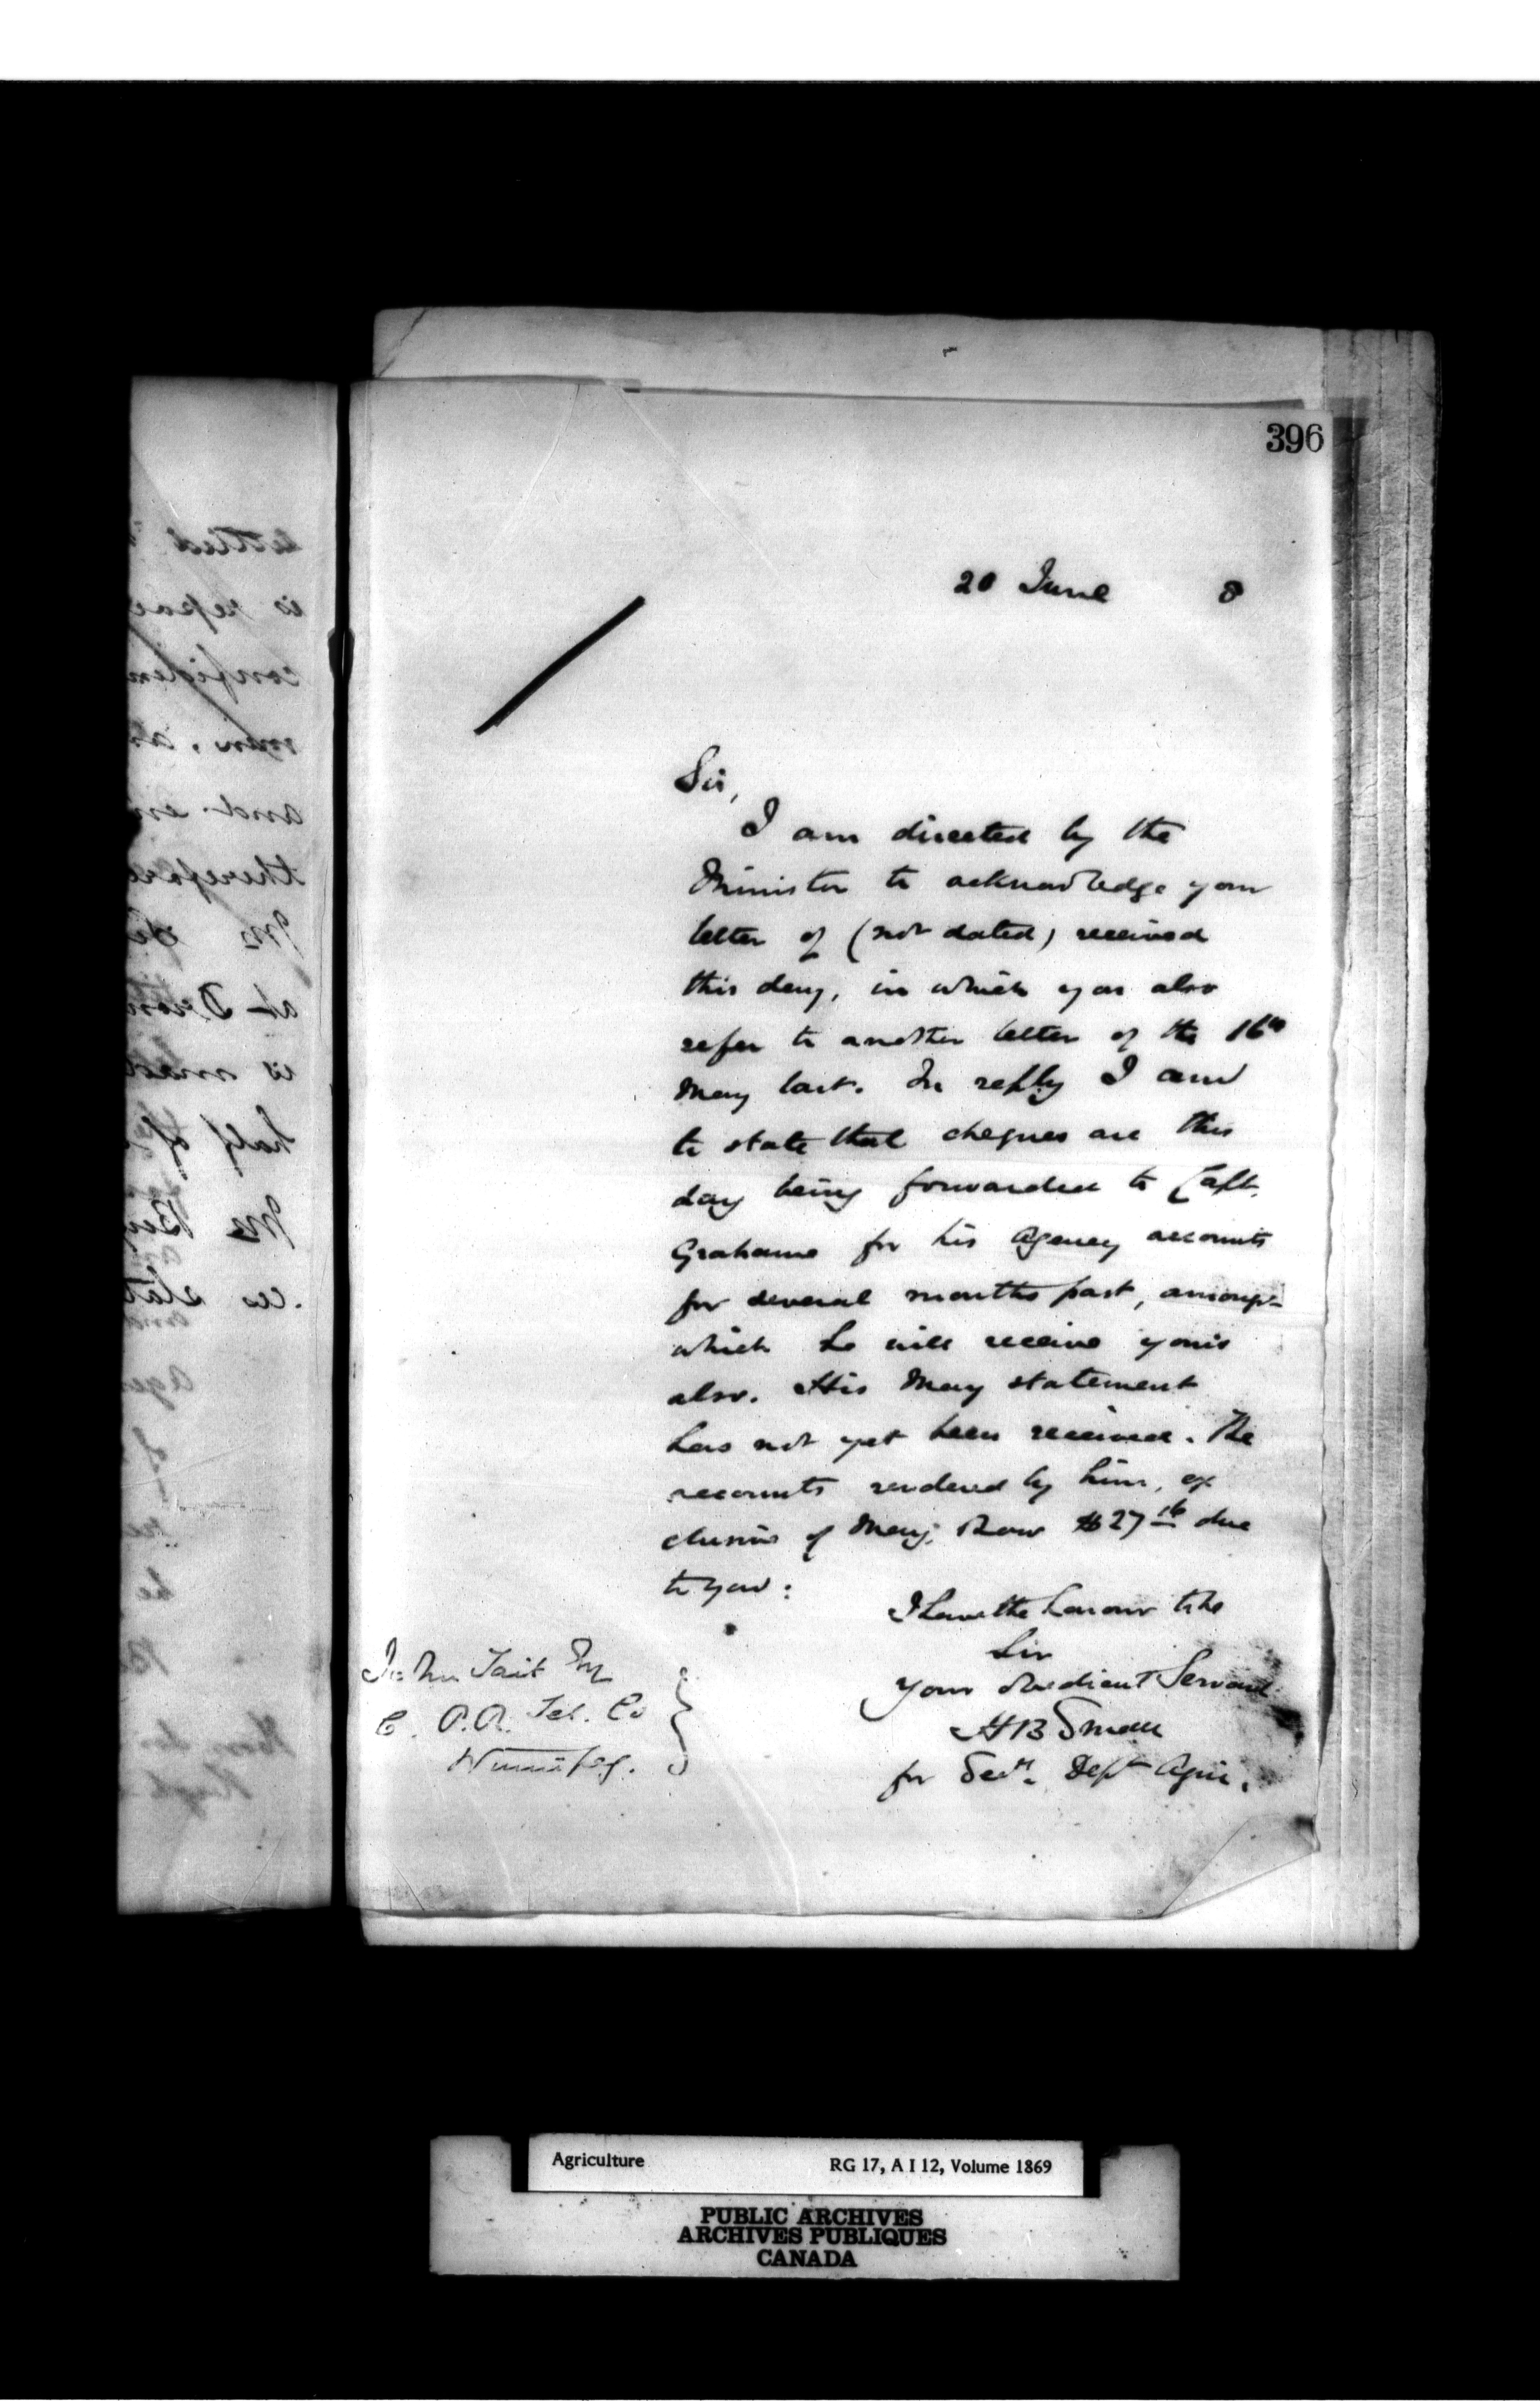 396
20 June 8
Sir,
I am directed by the
Minister to acknowledge your
letter of (not dated) received
this day, in which you also
refer to another letter of the 16th
May last. In reply I am
to state that cheques are this
day being forwarded to Capt.
Grahame for his Agency accounts
for several months past, amongst
which he will receive yours
also. His May statement
has not yet been received. The
accounts rendered by him, ex
clusive of May, show $27 16 due
to you:
I have the honour to be
Sir
Your obedient Servant
H B Small
for Secy. Dept Agric.
John Tait Esq
C. P.R. Tel. Co
Winnipeg.
settled
is repaid
confiden
min, at
and en
therefore
Mr
at Dron
is made
half of
Mr Be
as stat
and
agen
of
re
be
Agriculture RG 17, A I 12, Volume 1869
PUBLIC ARCHIVES
ARCHIVES PUBLIQUES
CANADA